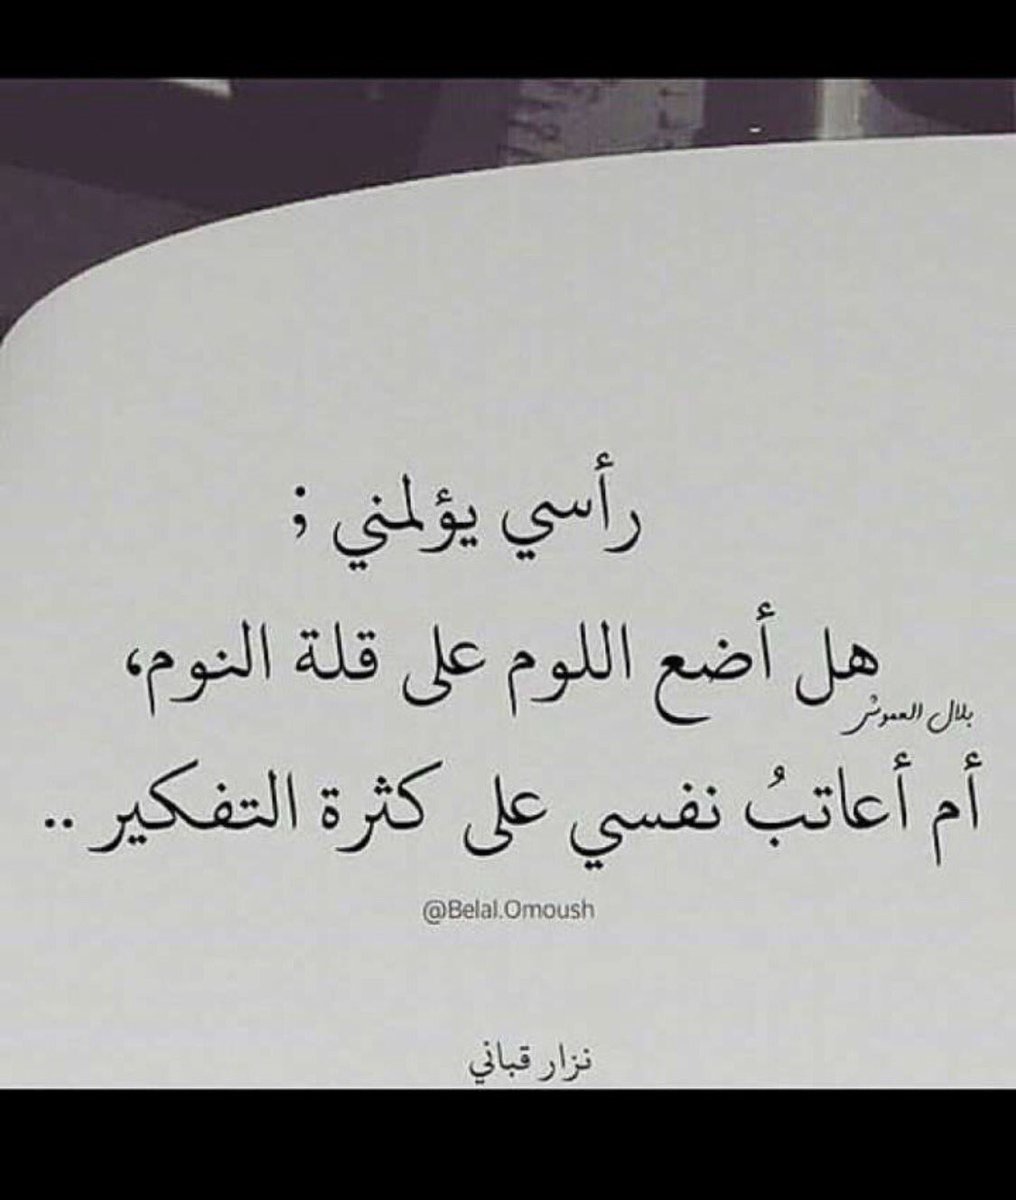 رأسي يؤلمني ;
هل أضع اللوم على قلة النوم،
بلال العموش
أم أعاتبُ نفسي على كثرة التفكير ..
@Belal.Omoush
نزار قباني